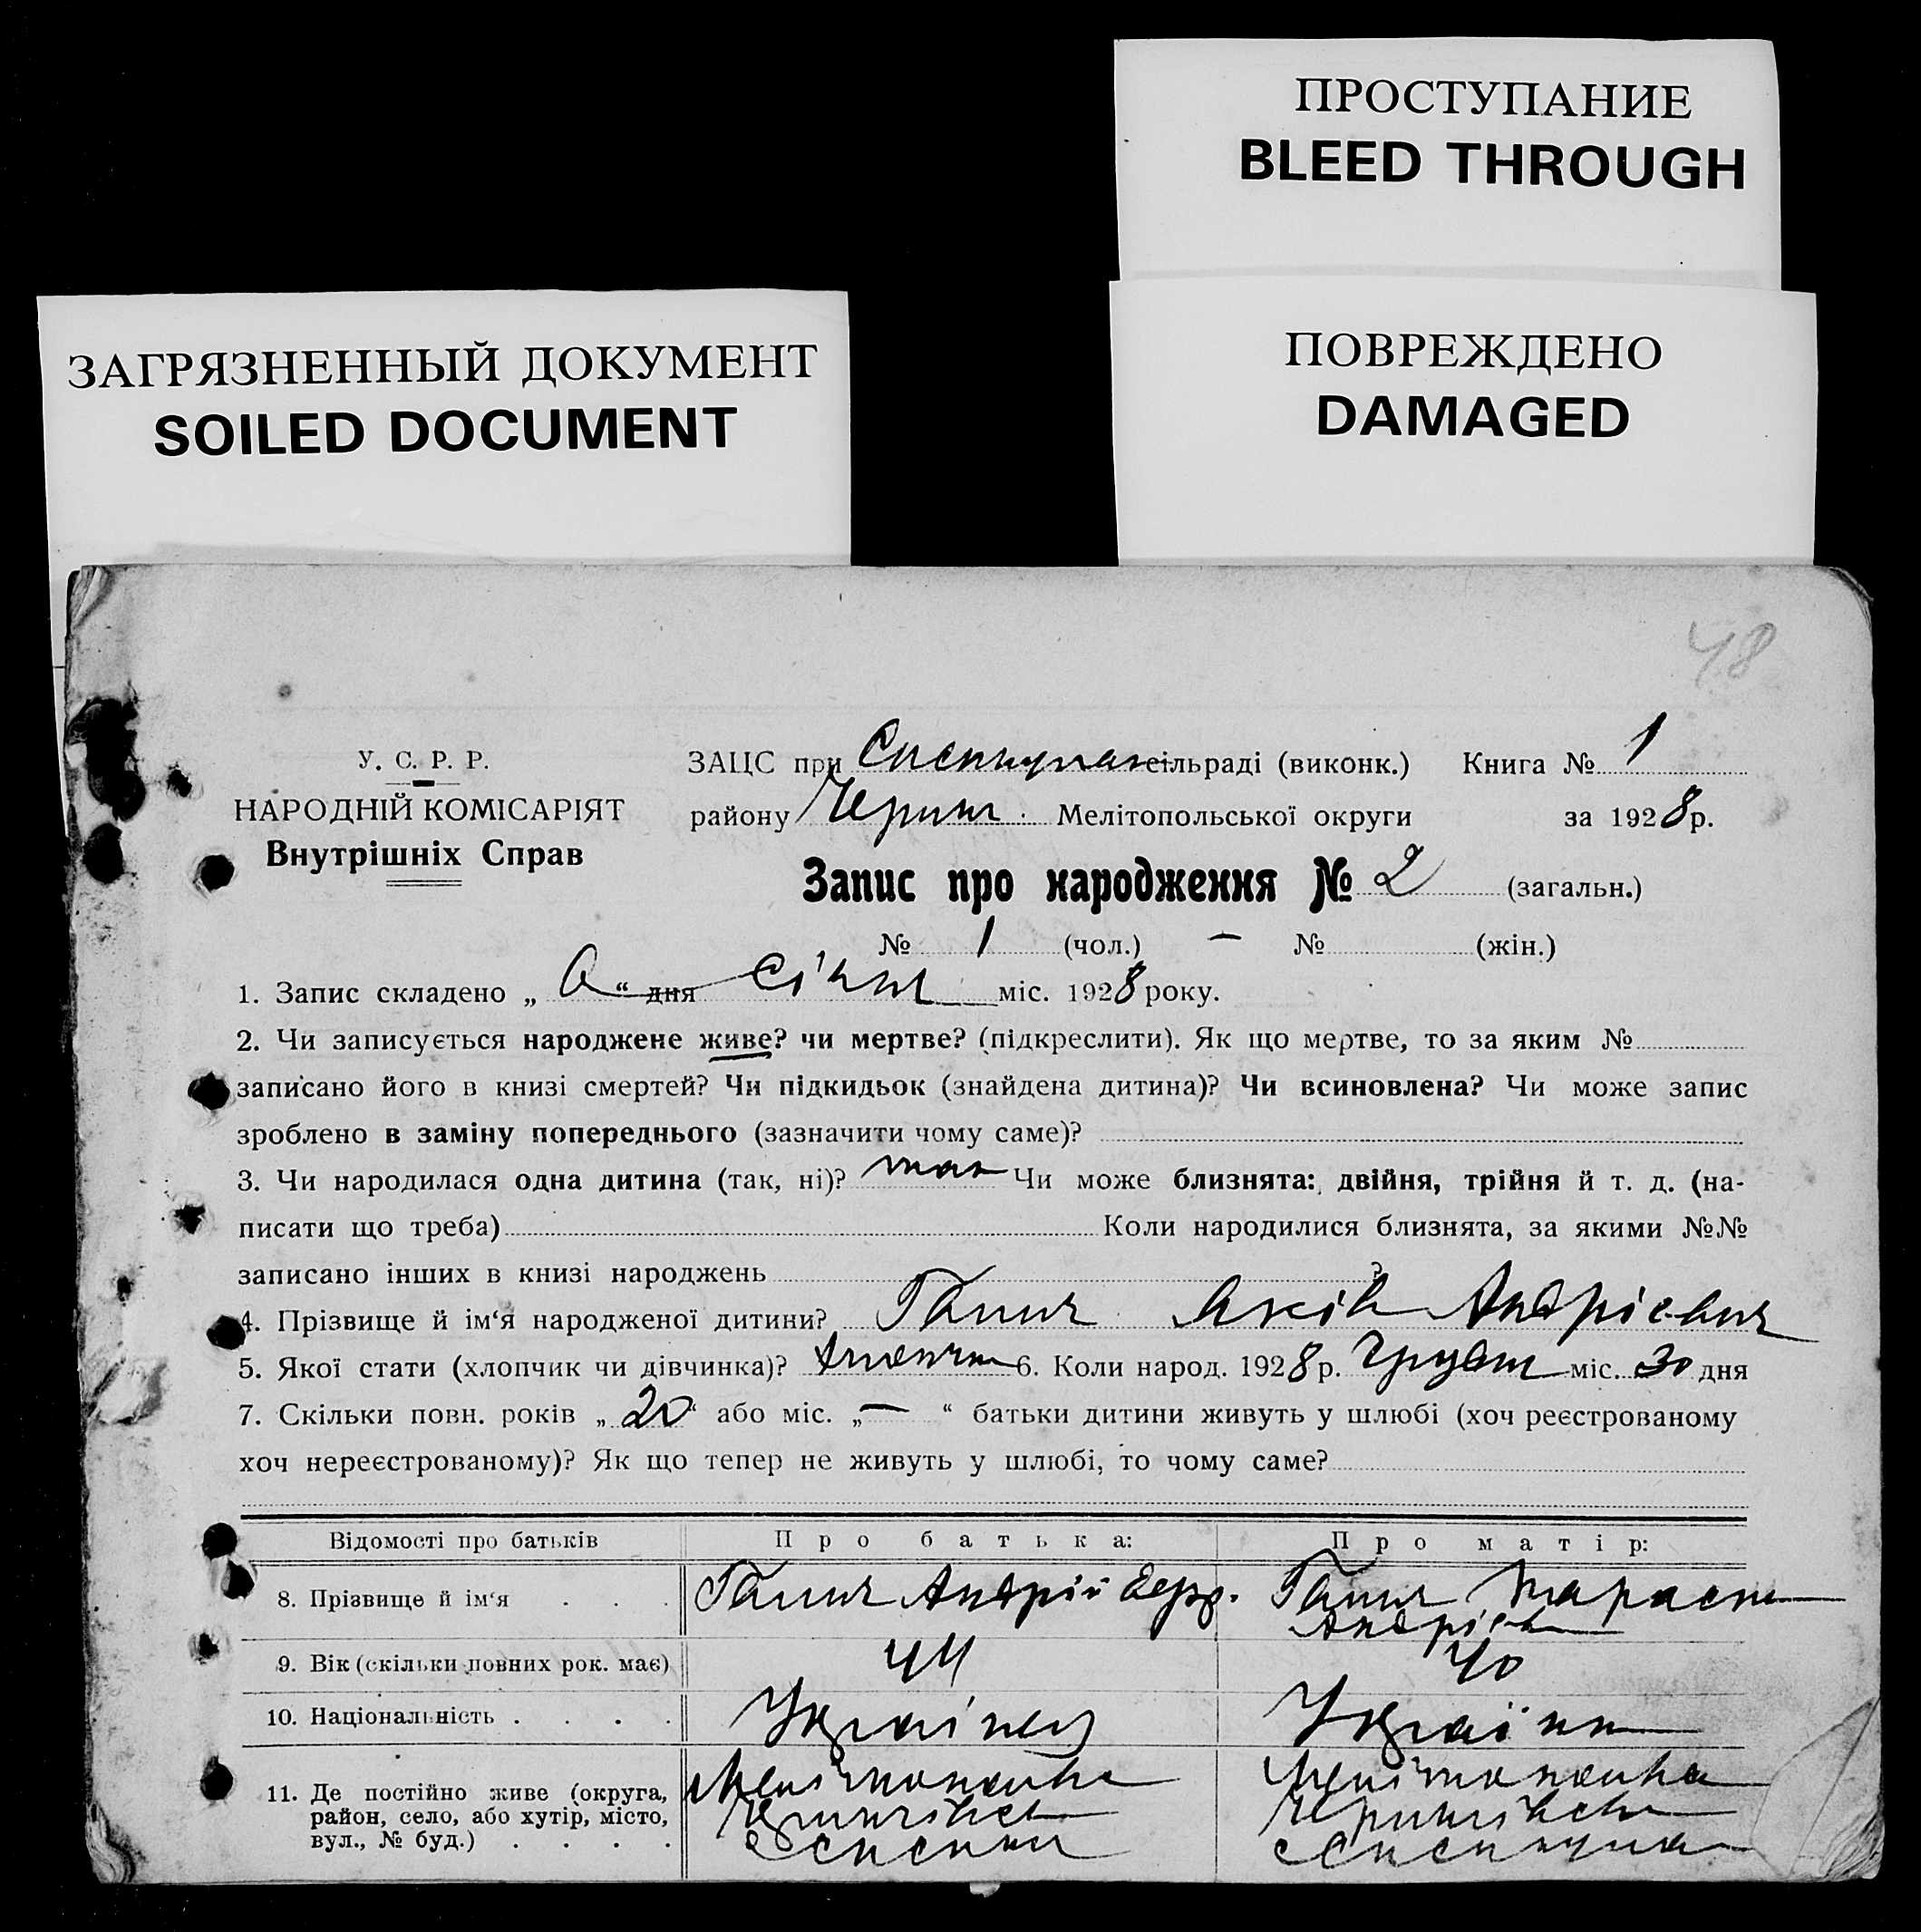 ПРОСТУПАНИЕ
BLEED THROUGH
ЗАГРЯЗНЕННЫЙ ДОКУМЕНТ
SOILED DOCUMENT
ПОВРЕЖДЕНО
DAMAGED
48
У. С. Р. Р.
НАРОДНІЙ КОМІСАРІЯТ
Внутрішніх Справ
ЗАЦС при сільраді (виконк.) Книга № 1
району Мелітопольської округи за 1928 р.
Запис про народження № 2 (загальн.)
№ 1 (чол.) — № (жін.)
1. Запис складено „ “ дня Січня міс. 1928 року.
2. Чи записується народжене живе? чи мертве? (підкреслити). Як що мертве, то за яким №
записано його в книзі смертей? Чи підкидьок (знайдена дитина)? Чи всиновлена? Чи може запис
зроблено в заміну попереднього (зазначити чому саме)?
3. Чи народилася одна дитина (так, ні)? так Чи може близнята: двійня, трійня й т. д. (на-
писати що треба) Коли народилися близнята, за якими №№
записано інших в книзі народжень ?
4. Прізвище й ім‘я народженої дитини? Яків Андрієвич
5. Якої стати (хлопчик чи дівчинка)? хлопчик 6. Коли народ. 1928 р. Грудня міс. 30 дня
7. Скільки повн. років „ 20 “ або міс. „ — “ батьки дитини живуть у шлюбі (хоч реєстрованому
хоч нереєстрованому)? Як що тепер не живуть у шлюбі, то чому саме?
Відомості про батьків Про батька: Про матір:
8. Прізвище й ім‘я . . . Андрій
9. Вік (скільки повних рок. має) 44 40
10. Національність . . . . Українец Українка
11. Де постійно живе (округа,
район, село, або хутір, місто,
вул., № буд.) . . . .